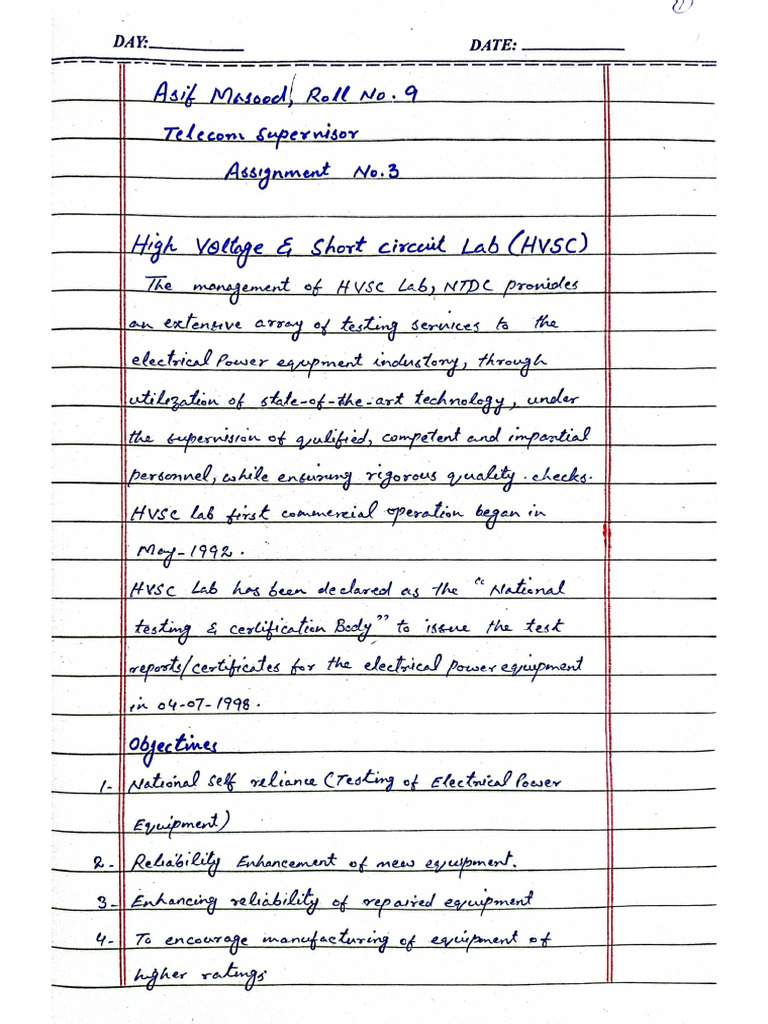 (1)
DAY:__________ DATE: __________
Asif Masood, Roll No. 9
Telecom Supervisor
Assignment No. 3
High Voltage & Short circuit Lab (HVSC)
The management of HVSC Lab, NTDC provides
an extensive array of testing services to the
electrical Power equpment industory, through
utilization of state-of-the-art technology, under
the supervision of qulified, competent and impartial
personnel, while ensuring rigorous quality checks.
HVSC lab first commercial operation began in
May-1992.
HVSC Lab has been declared as the "National
testing & certification Body" to issue the test
reports/certificates for the electrical power equipment
in 04-07-1998.
Objectives
1- National Self reliance (Testing of Electrical Power
Equipment)
2- Reliability Enhancement of new equipment.
3- Enhancing reliability of repaired equipment
4- To encourage manufacturing of equipment of
higher ratings